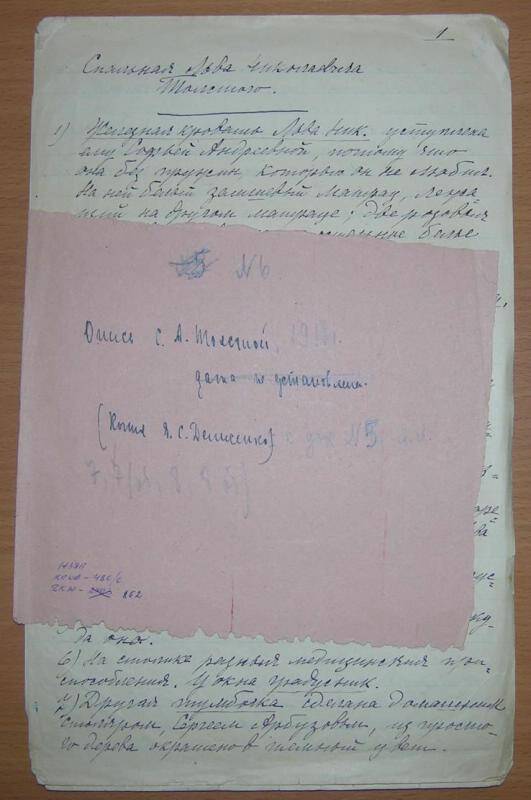 1
Спальная Льва Николаевича
Толстого.
1) Железная кровать Льва Ник. уступлена
ему Софьей Андреевной, потому что
она без пружин, которых он не любил.
На ней белый замшевый матрац, лежа-
щий на другом матраце; две розовыя
белье
№ 6
Опись С. А. Толстой, 1912г.
дата не установлена.
(Копия В. С. Денисенко) с док № 5, л.л.
7, 7/об, 8, 8 об)
КП
862
да оно.
6) На столике разныя медицинския при-
способления. У окна градусник.
7) Другая тумбочка сделана домашним
столяром, Сергеем Арбузовым, из просто-
го дерева окрашено в темный цвет.